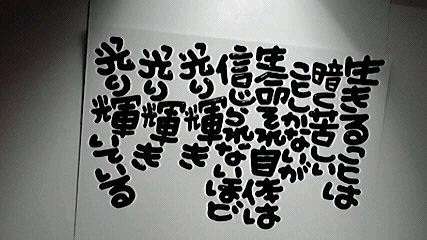 生きることは
暗く苦しい
ことしかないが
生命それ自体は
信じられないほど
光り輝き
光り輝き
光り輝いている